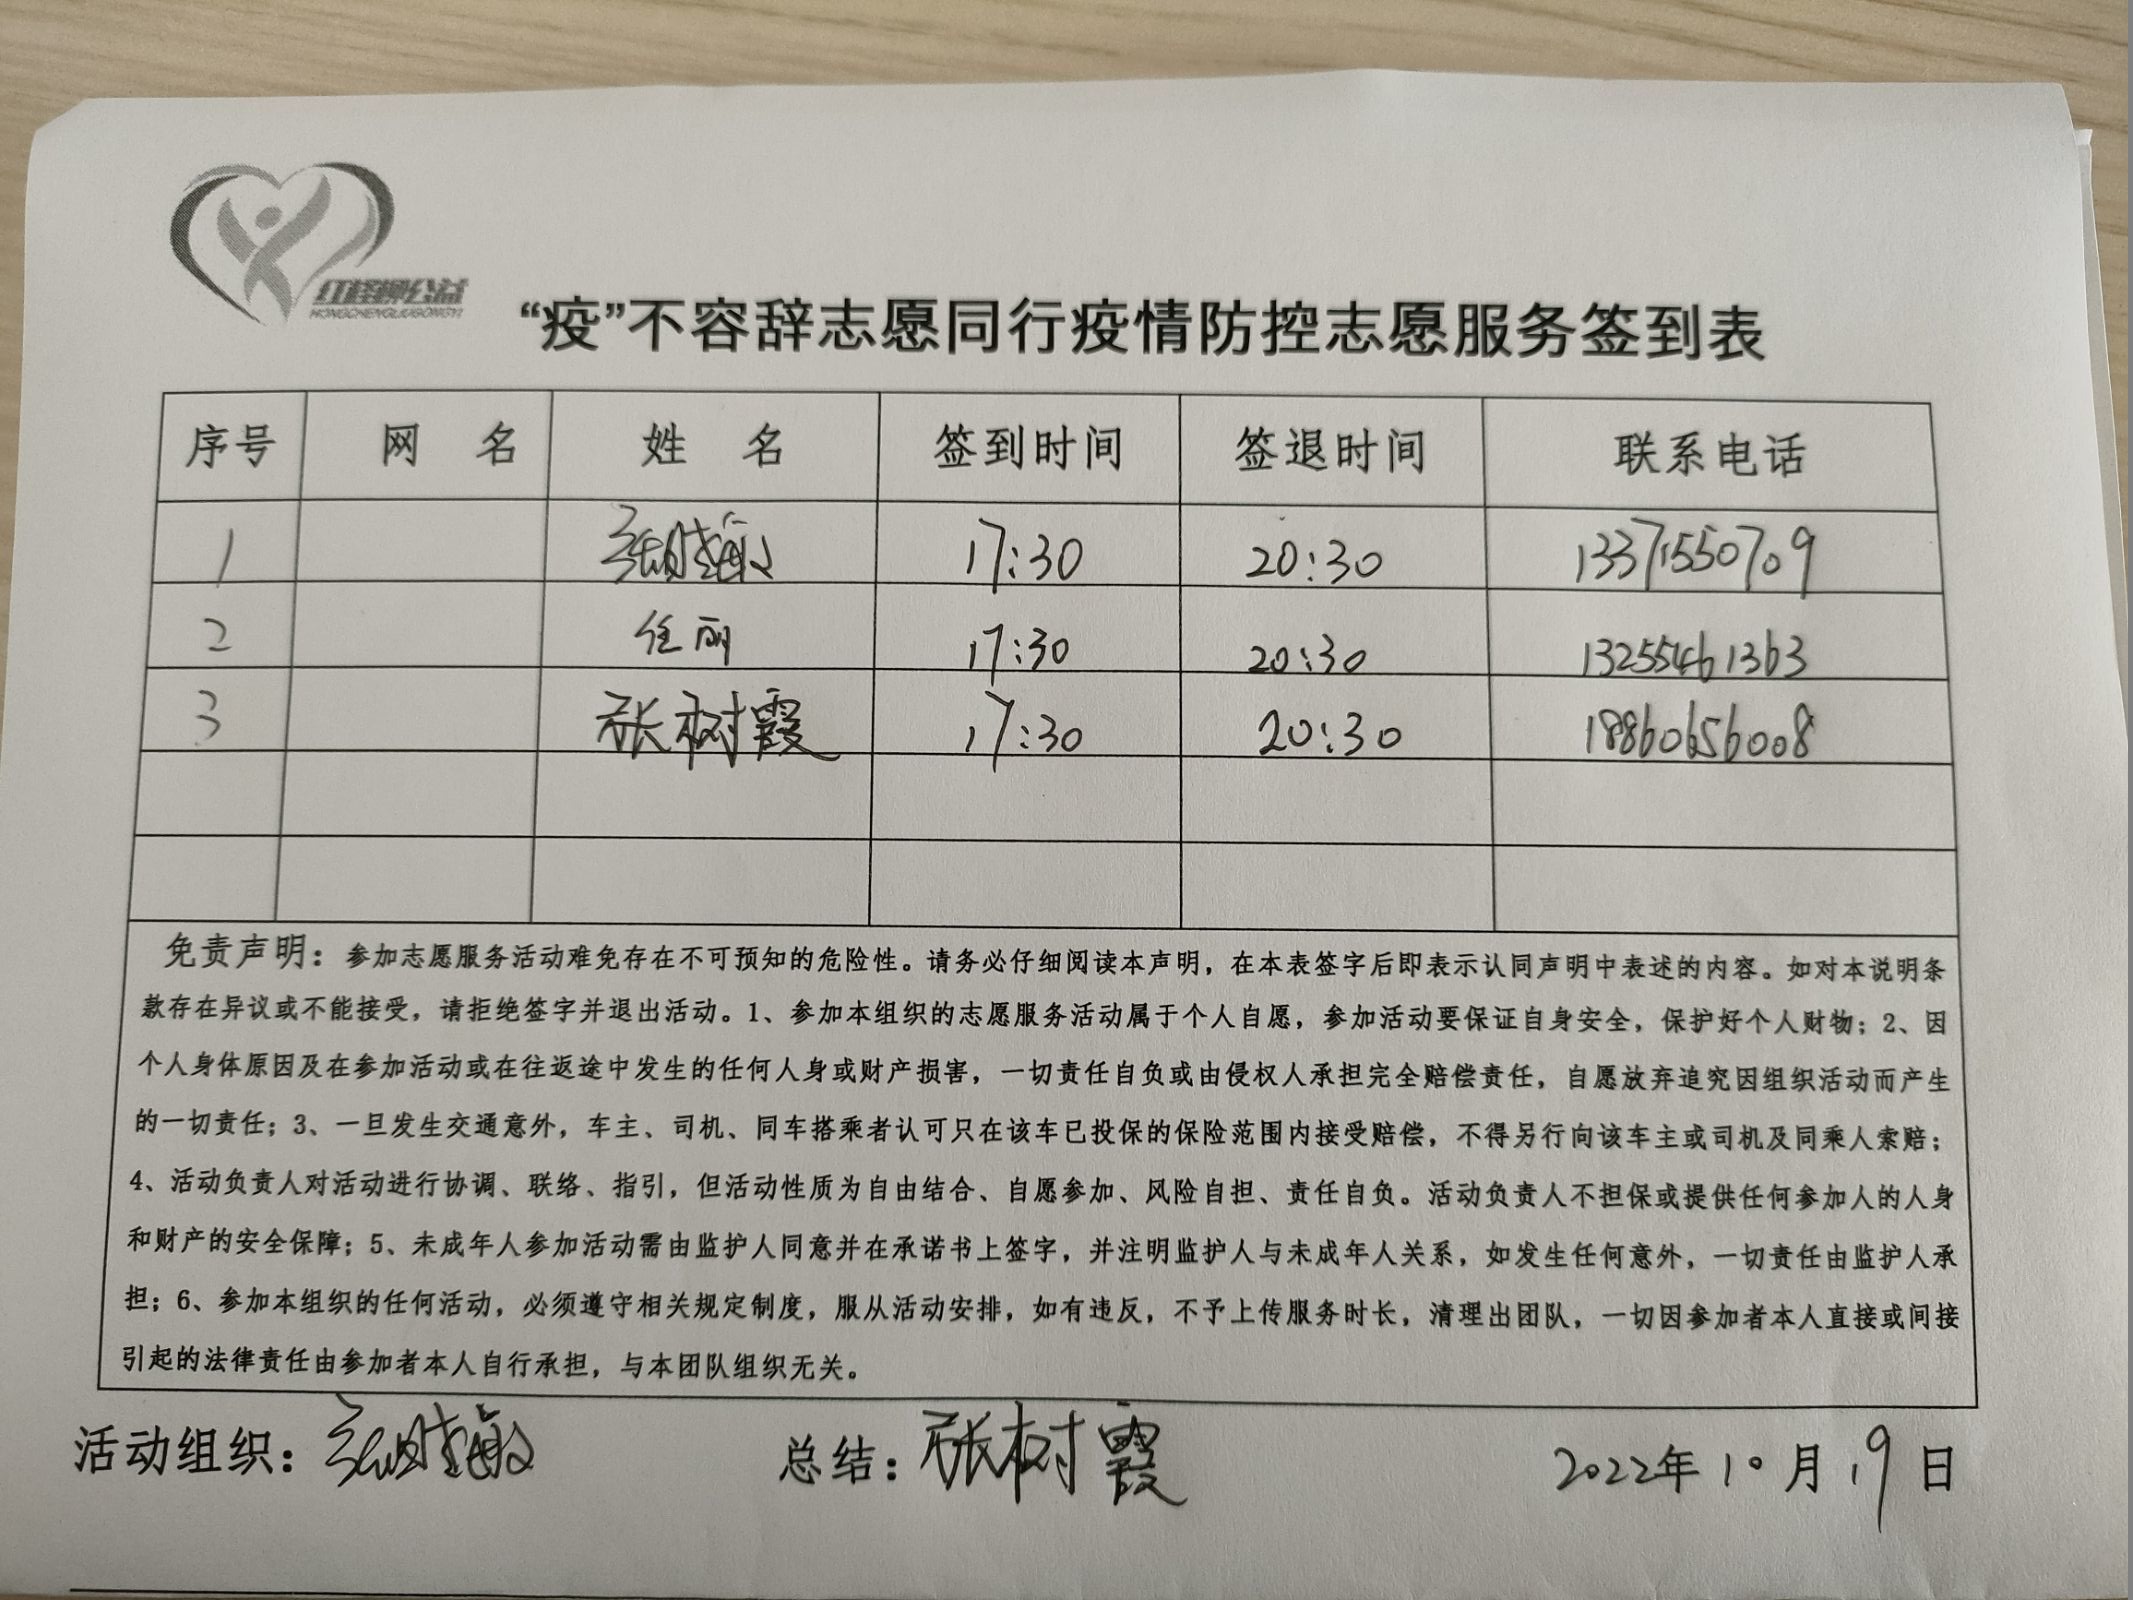 红柽柳公益
HONGCHENGLIUGONGYI
“疫”不容辞志愿同行疫情防控志愿服务签到表
序号 网 名 姓 名 签到时间 签退时间 联系电话
1 17:30 20:30 13371550709
2 任丽 17:30 20:30 13255461363
3 张树霞 17:30 20:30 18860656008
免责声明：参加志愿服务活动难免存在不可预知的危险性。请务必仔细阅读本声明，在本表签字后即表示认同声明中表述的内容。如对本说明条
款存在异议或不能接受，请拒绝签字并退出活动。1、参加本组织的志愿服务活动属于个人自愿，参加活动要保证自身安全，保护好个人财物；2、因
个人身体原因及在参加活动或在往返途中发生的任何人身或财产损害，一切责任自负或由侵权人承担完全赔偿责任，自愿放弃追究因组织活动而产生
的一切责任；3、一旦发生交通意外，车主、司机、同车搭乘者认可只在该车已投保的保险范围内接受赔偿，不得另行向该车主或司机及同乘人索赔；
4、活动负责人对活动进行协调、联络、指引，但活动性质为自由结合、自愿参加、风险自担、责任自负。活动负责人不担保或提供任何参加人的人身
和财产的安全保障；5、未成年人参加活动需由监护人同意并在承诺书上签字，并注明监护人与未成年人关系，如发生任何意外，一切责任由监护人承
担；6、参加本组织的任何活动，必须遵守相关规定制度，服从活动安排，如有违反，不予上传服务时长，清理出团队，一切因参加者本人直接或间接
引起的法律责任由参加者本人自行承担，与本团队组织无关。
活动组织： 总结：张树霞 2022年10月19日